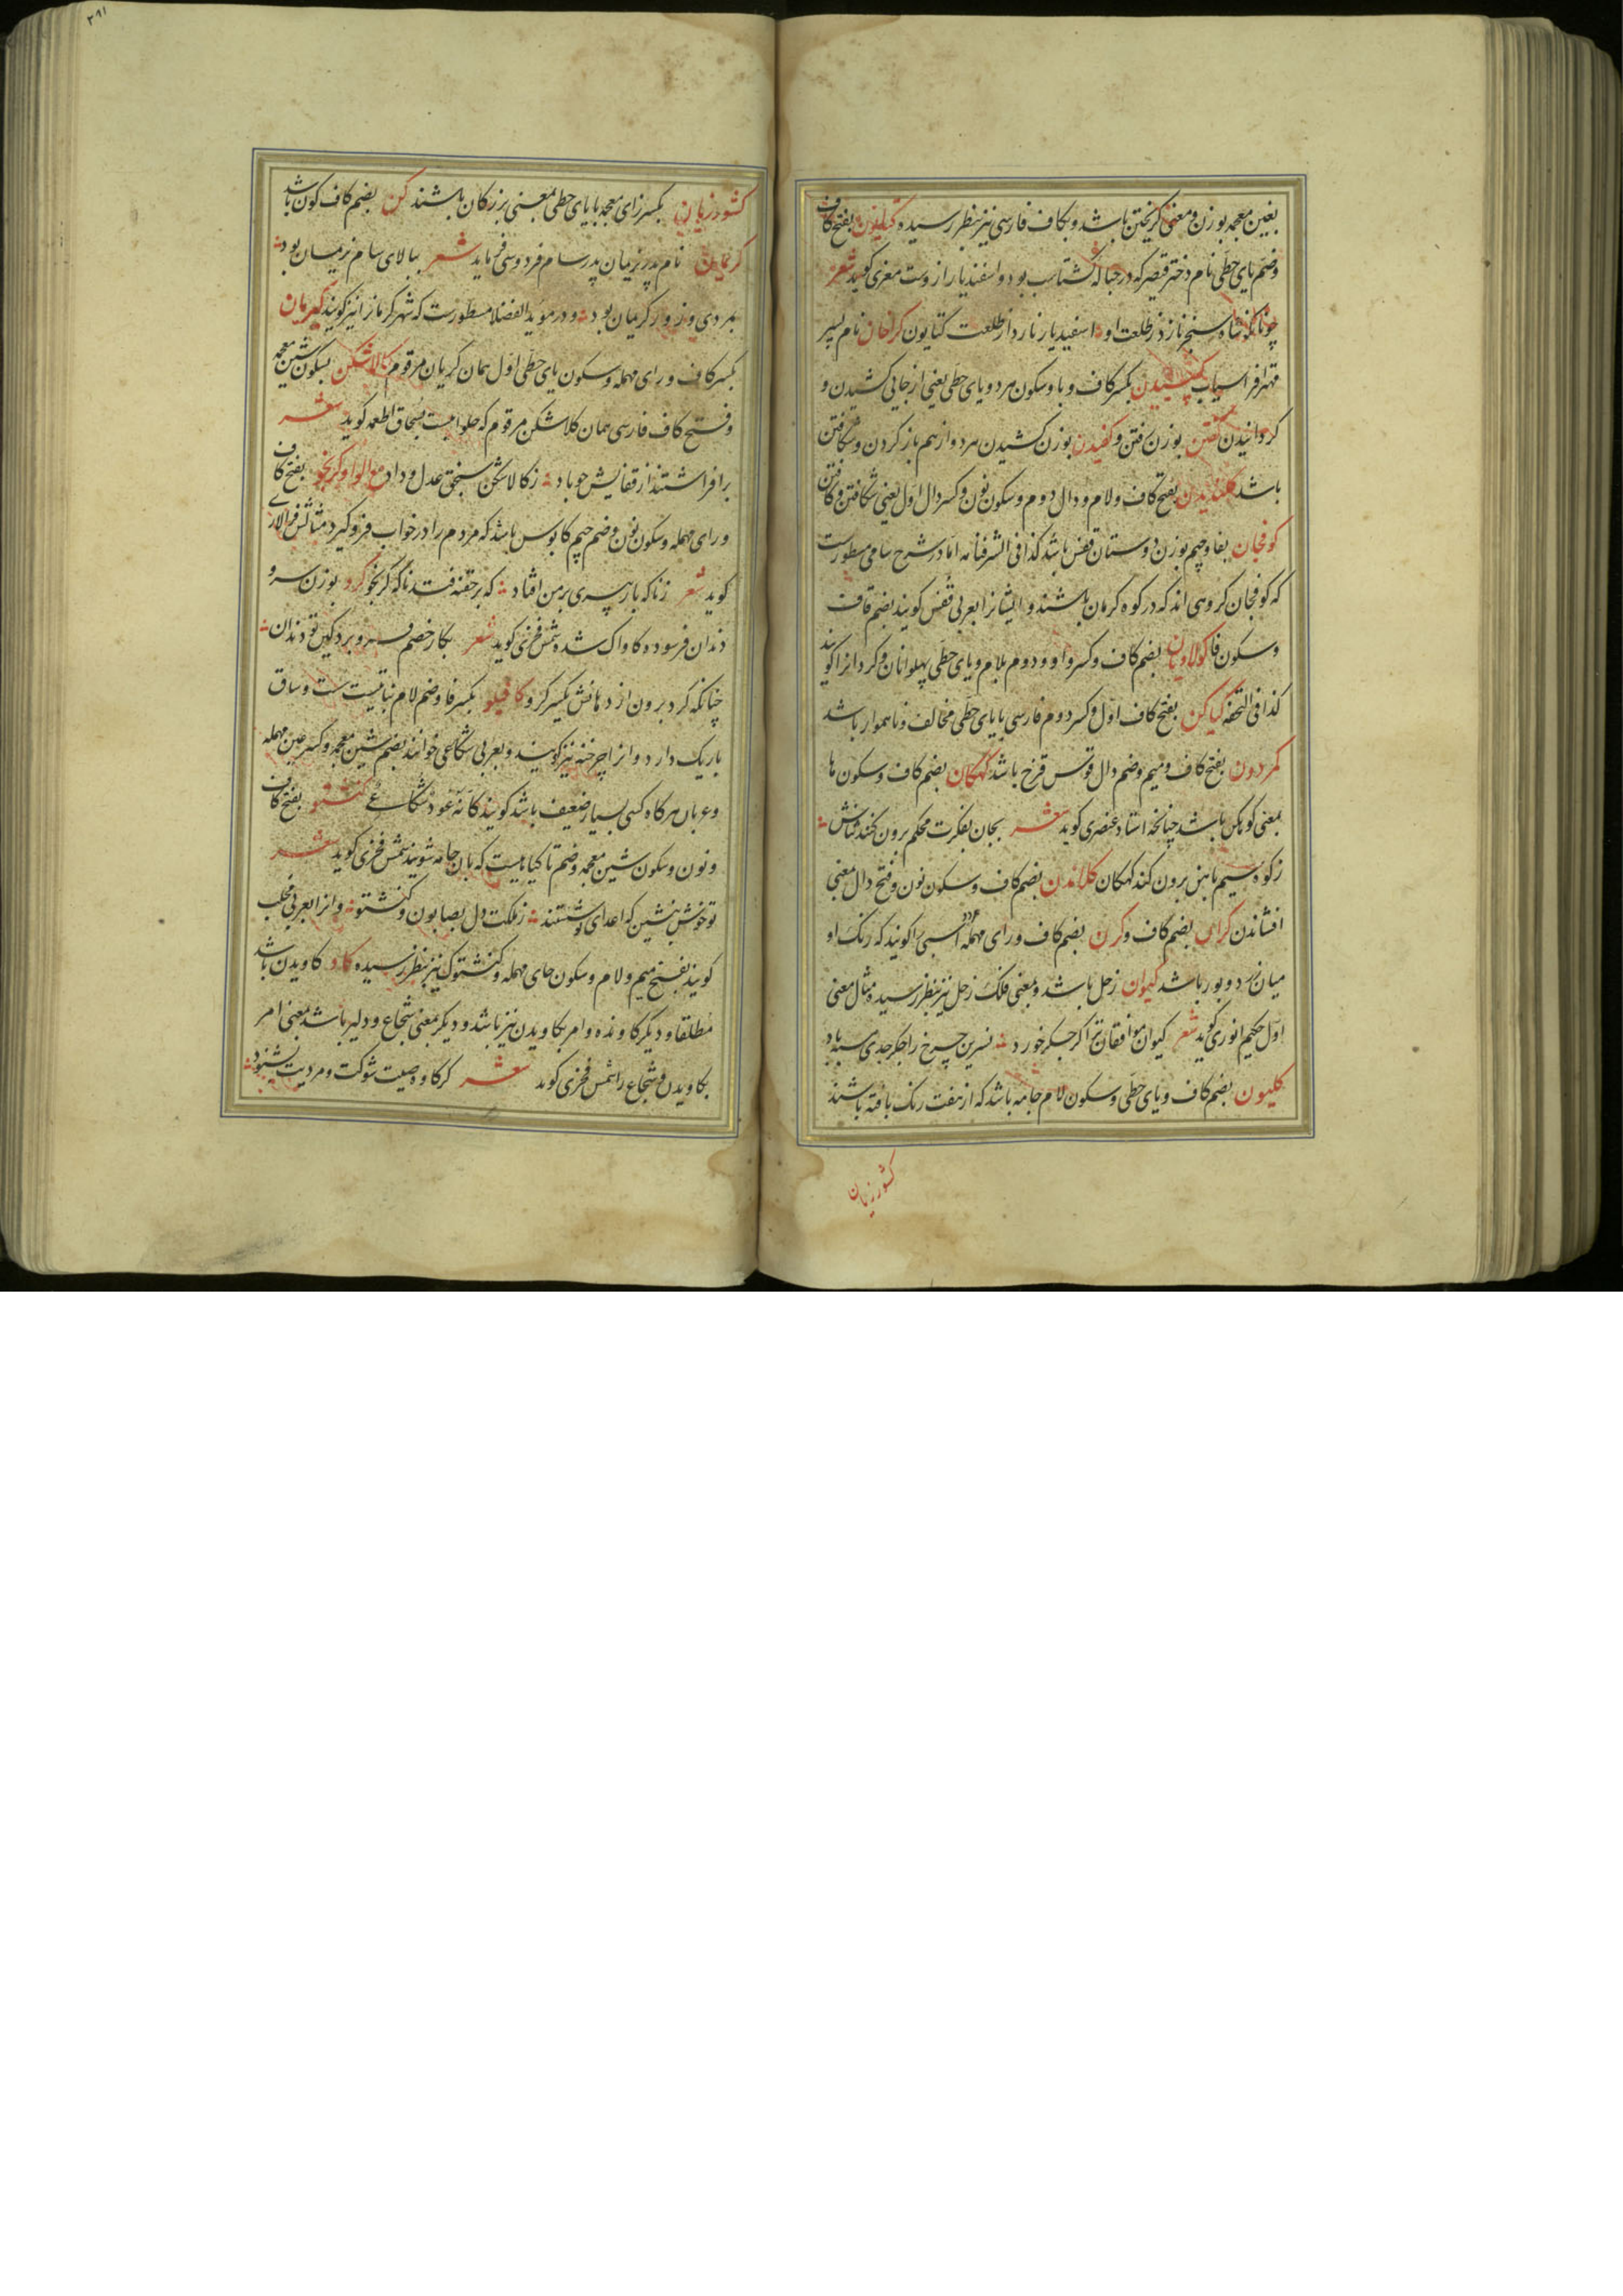 بغین معجمه بوزن و معنی گریختن باشد و بکاف فارسی نیز بنظر رسیده کتایون بفتح کاف
وضم یای حطی نام دختر قیصر که در حباله گشتاسب بود و اسفندیار ازوست معزی گوید شعر
چونانکه شاه سنجر نازد ز طلعت او اسفندیار نازد از طلعت کتایون کرخان نام پسر
مهتر افراسیاب کیبیدن بکسر کاف و با و سکون هر دو یای حطی یعنی از جایی کشیدن و
گردانیدن کفتن بوزن رفتن و کفیدن بوزن کشیدن هر دو از هم باز کردن و شکافتن
باشد کلندیدن بفتح کاف و لام و دال دوم و سکون نون و کسر دال اول یعنی شکافتن و کافتن
کوفجان بفا و جیم بوزن دوستان قفس باشد کذا فی الشرفنامه اما در شرح سامی مسطورست
که کوفجان گروهی اند که در کوه کرمان باشند و ایشانرا بعربی قفس گویند بضم قاف
وسکون فا کولاویان بضم کاف و کسر واو دوم بلام و یای حطی پهلوانان و گردانرا گویند
کذا فی التحفه کیاکن بفتح کاف اول و کسر دوم فارسی با یای حطی مخالف و ناهموار باشد
کمردون بفتح کاف و میم و ضم دال قوس قزح باشد کهکان بضم کاف و سکون ها
بمعنی کوهکن باشد چنانچه استاد عنصری گوید شعر بجان بفکرت محکم برون کند شانش
ز کوه سیم باهن برون کند کهکان کلاندن بضم کاف و سکون نون و فتح دال معنی
افشاندن کران بضم کاف و کرن بضم کاف و رای مهمله اسبی را گویند که رنگ او
میان زرد و بور باشد کیوان زحل باشد و بمعنی فلک زحل نیز بنظر رسیده مثال معنی
اول حکیم انوری گوید شعر کیوان موافقان ترا گر جگر خورد نسرین چرخ را جگر جدی مسته باد
کلیون بضم کاف و یای حطی و سکون لام جامه باشد که از هفت رنگ بافته باشند
کشورزیان
۳۹۱
کشورزیان بکسر زای معجمه با یای حطی بمعنی برزکان باشند کن بضم کاف کون باشد
کرمان نام پدر نریمان پدر سام فردوسی فرماید شعر ببالای سام نریمان بود
بمردی و زور کریمان بود و در مویدالفضلا مسطورست که شهر کرمانرا نیز گویند کیرمان
بکسر کاف و رای مهمله و سکون یای حطی اول همان کریمان مرقوم کالاشکن بسکون شین معجمه
و فتح کاف فارسی همان کلاشکن مرقوم که حلواییست بسحاق اطعمه گوید شعر
برافراشتند از قفایش چو باد ز کالاشکن سنجق عدل و داد مع الواو کرنجو بفتح کاف
و رای مهمله و سکون نون و ضم جیم کابوس باشد که مردم را در خواب فرو گیرد مثالش فرالاوی
گوید شعر ز ناگه بار پیری بر من افتاد که بر خفته فتد ناگه کرنجو کرو بوزن سرو
دندان فرسوده کاواک شده شمس فخری گوید شعر بکار خصم فرو برد کین تو دندان
چنانکه گرد برون از دهانش یکسر کرو کافیلو بکسر فا و ضم لام نباتیست ست و ساق
باریک دارد و انرا چرخنه نیز گویند و بعربی شکاعی خوانند بضم شین معجمه و کسر عین مهمله
و عربان هرگاه کسی بسیار ضعیف باشد گویند کانه عود شکاعی کنشتو بفتح کاف
و نون و سکون شین معجمه و ضم تا گیاهیست که بان جامه شویند شمس فخری گوید شعر
تو خوش بنشین که اعدای تو شستند ز ملکت دل بصابون و کنشتو و انرا بعربی محلب
گویند بفتح میم و لام و سکون حای مهمله و کنشتوک نیز بنظر رسیده کاو کاویدن باشد
مطلقا و دیگر کاونده و امر بکاویدن نیز باشد و دیگر بمعنی شجاع و دلیر باشد بمعنی امر
بکاویدن و شجاع را شمس فخری گوید شعر گر کاو وصیت شوکت و مردیت بشنود